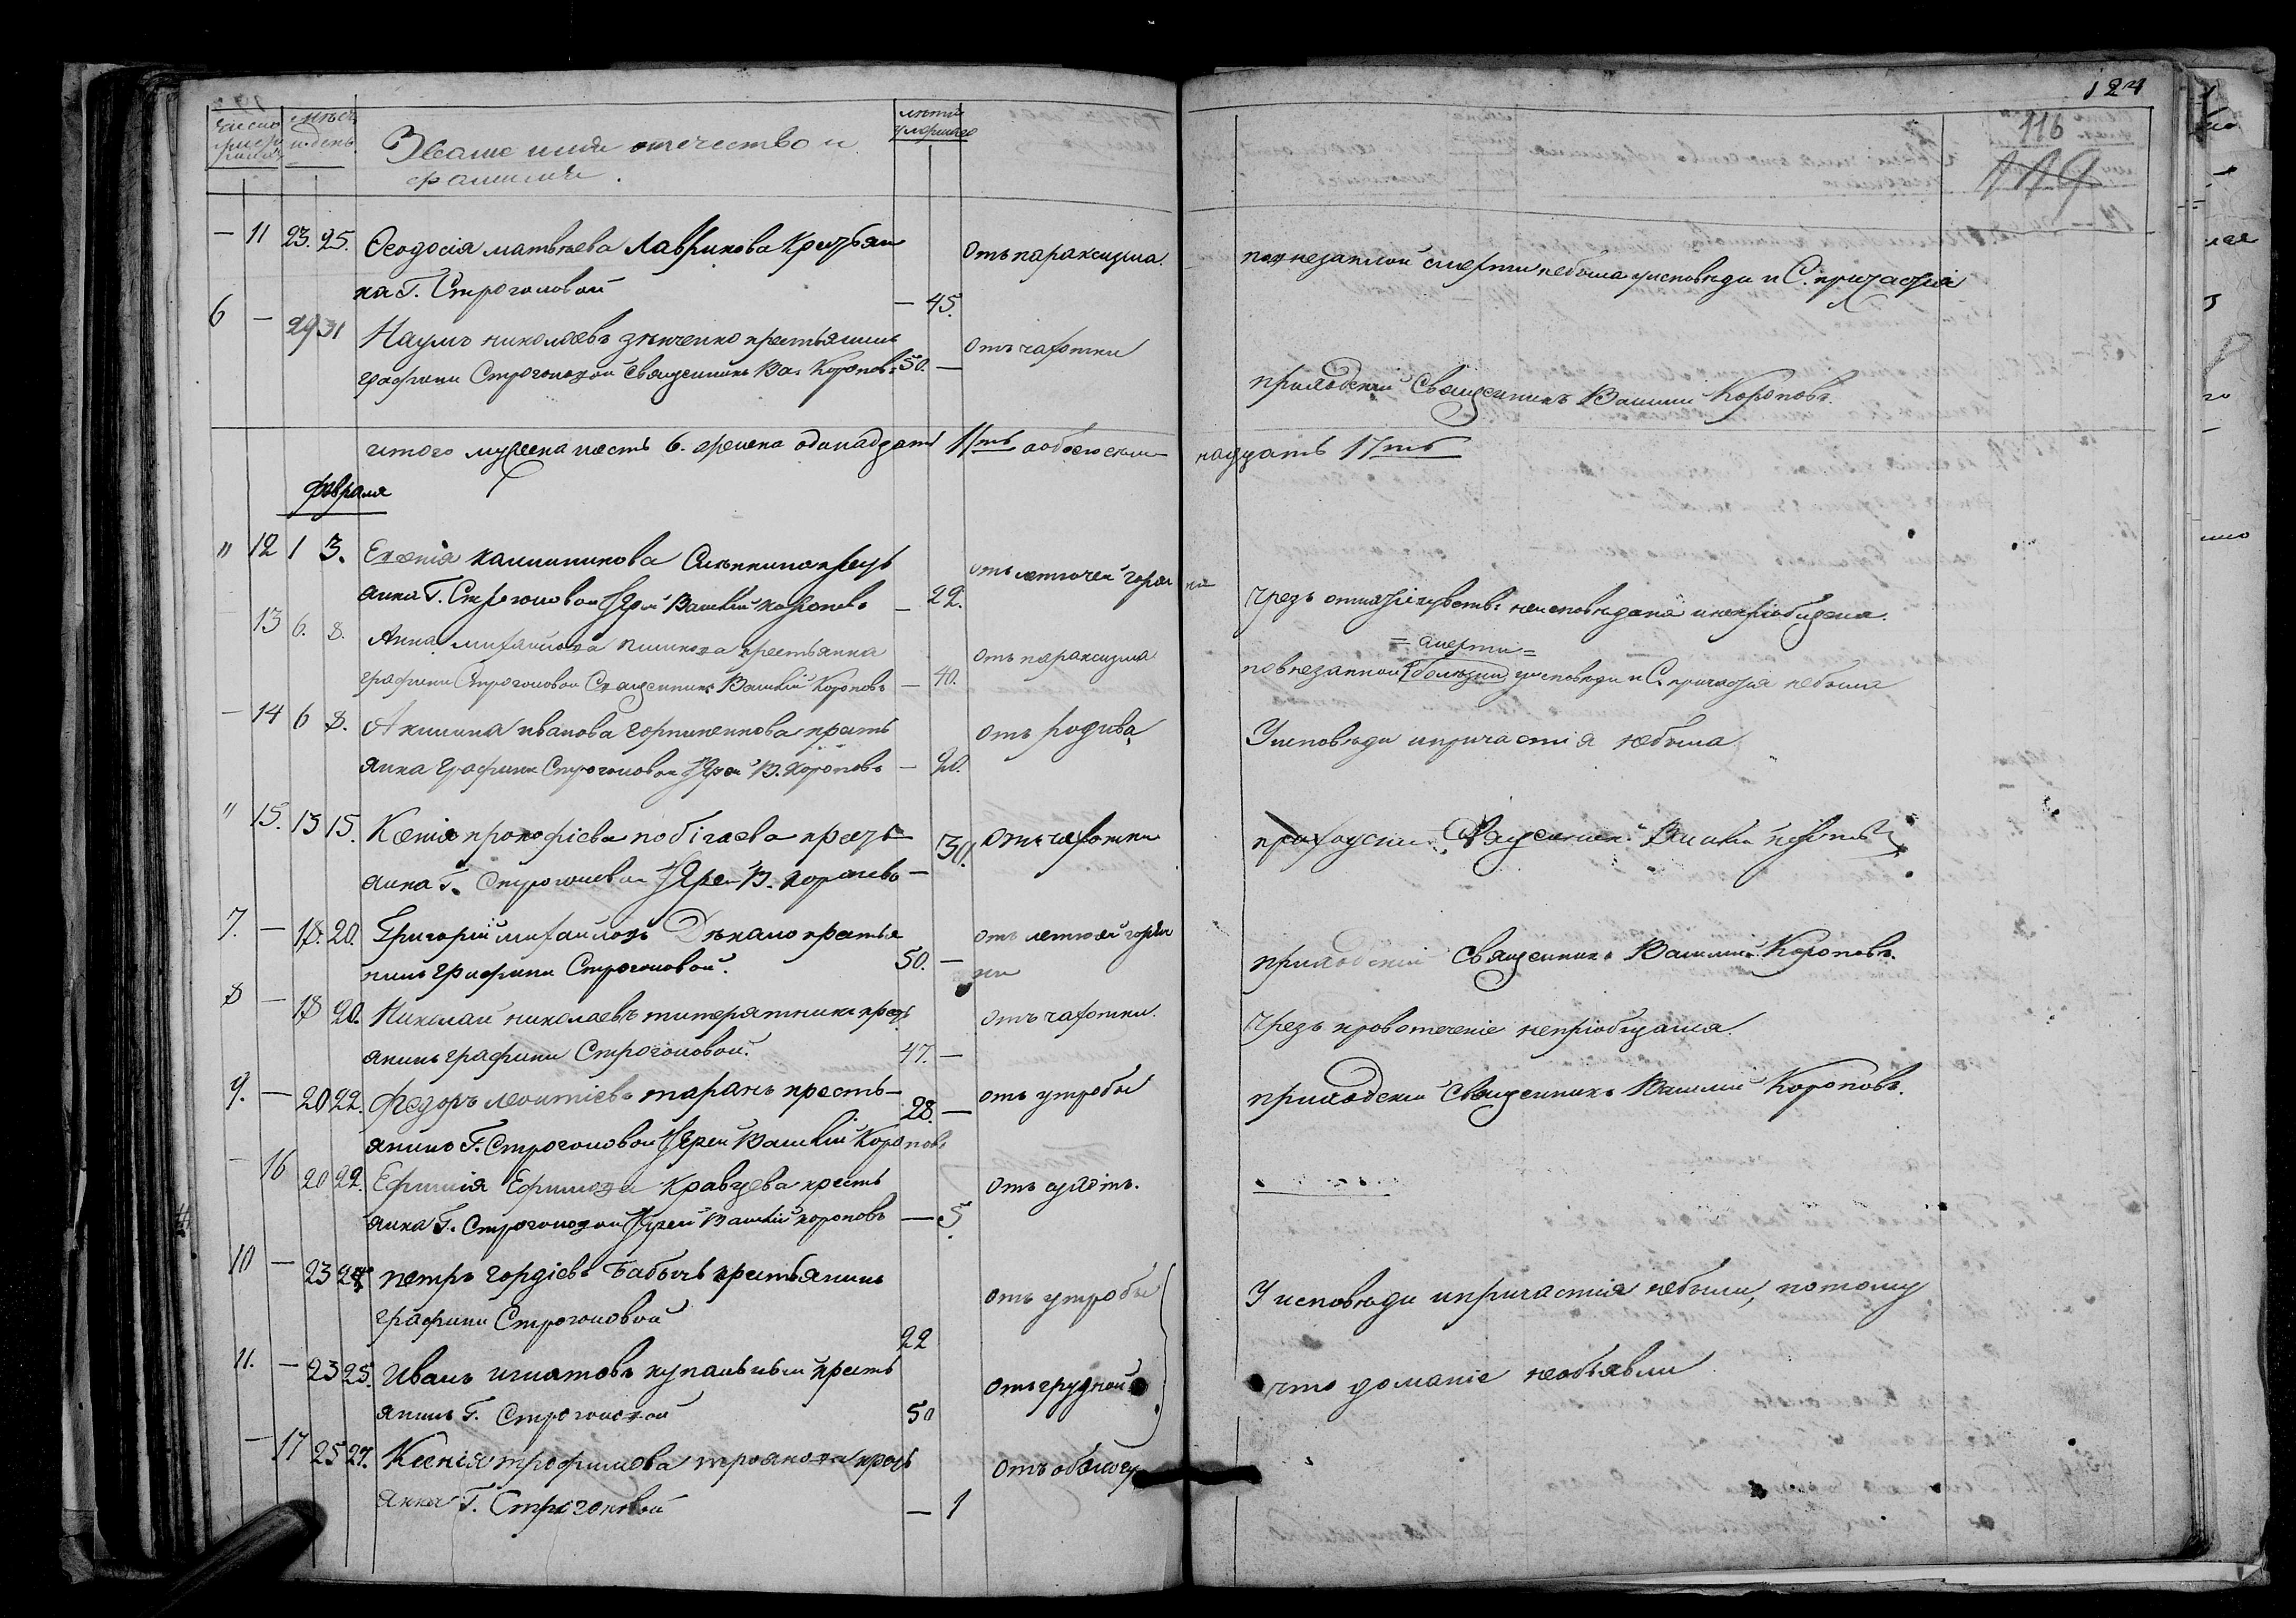 124
116
119
число умер ших
мѣсяцъ и день
Званіе имя отечество и
фамилия.
лѣта умершаго
— 11 23. 25. Ѳеодосія матвѣева Лаврикова Крестьян
ка Г. Строгоновой — 45.
отъ параксизма
по внезапной смерти небыла уисповѣди и С. причастія
6 — 29 31 Наумъ николаевъ зѣнченко крестьянинъ
графини Строгоновой Священникъ Вас. Короповъ 50. —
отъ чахотки
приходскій Священникъ Василий Короповъ.
итого мужеска шесть 6. женска одинадцать 11ть аобоего семь
надцать 17ть
февраля
" 12 1 3. Евгенія калинникова Слѣпкина крест
янка Г. Строгоновой Іерей Василій Короповъ — 22.
отъ летючей горяч ки
Чрезъ отнятіе чувствъ неисповѣдана и непріобщена.
— 13 6. 8. Анна михайлова крестьянка
графини Строгоновой Священникъ Василій Короповъ — 40.
отъ параксизма
= смерти =
повнезапной болѣзни уисповѣди и С. причастія небыла
— 14 6 8. Акилина иванова горпиненкова кресть
янка графини Строгоновой Іерей В. Короповъ — 20.
отъ родива
Уисповѣди и причастія небыла
" 15. 13 15. Ксенія прокофіева побігаева крест
янка Г. Строгоновой Іерей В. Короповъ — 30.
отъ чахотки
приходскій Священникъ Василій Короповъ
7. — 18. 20. Григорій михайловъ Дѣкало крестья
нинъ графини Строгоновой. 50. —
отъ летючей горяч
ки
приходскій Священникъ Василий Короповъ.
8 — 18 20. Николай николаевъ титерятникъ крест
янинъ графини Строгоновой. 47. —
отъ чахотки.
Чрезъ кровотеченіе непріобщался.
9. — 20 22. Федоръ леонтіевъ таранъ кресть— 28. —
янинъ Г. Строгоновой Іерей Василій Короповъ
отъ утробы
приходскій Священникъ Василий Короповъ.
— 16 20 22. Ефимія Ефимова Кравцева кресть
янка Г. Строгоновой Іерей Василій Короповъ — 5.
10 — 23 24 петръ гордіевъ Бабычъ крестьянинъ
графини Строгоновой 22
отъ утробы
У исповѣди и причастія небыли, потому
11. — 23 25. Иванъ игнатовъ кресть
янинъ Г. Строгоновой 50
отъ грудной
что домашніе необъявли
— 17 25 27. Ксенія трофимова троянова крест
янка Г. Строгоновой — 1